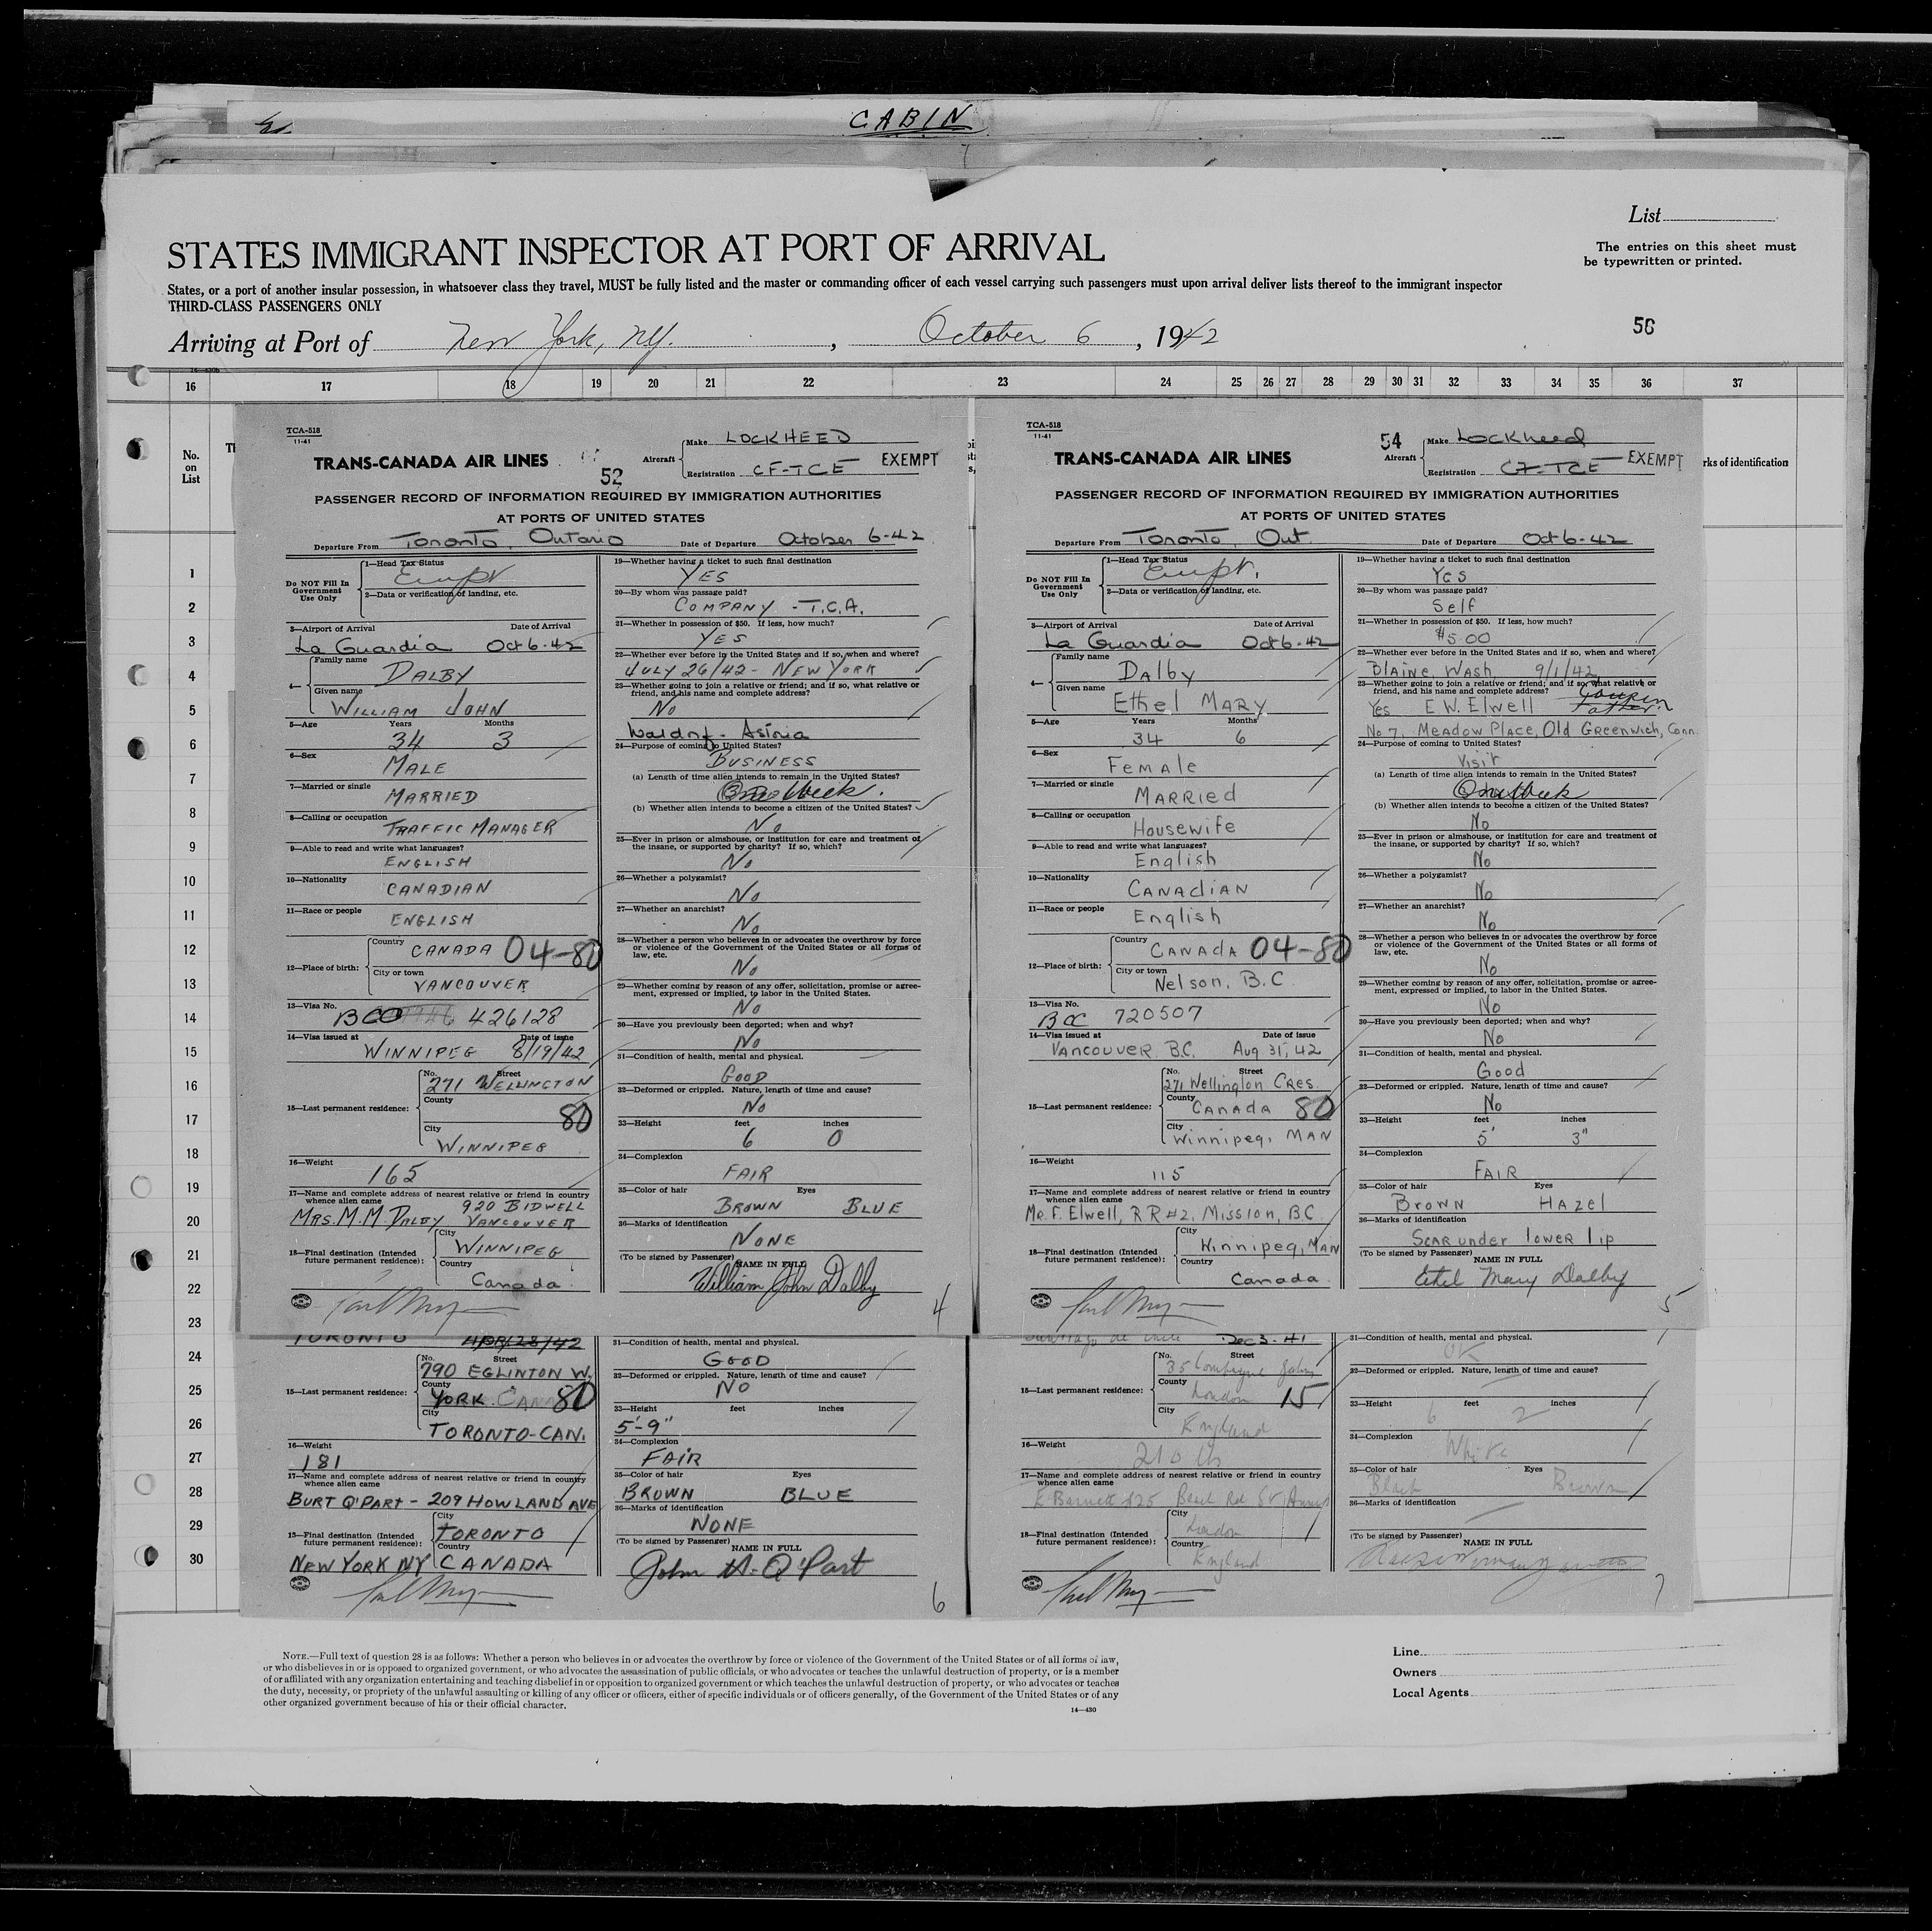 CABIN
List
STATES IMMIGRANT INSPECTOR AT PORT OF ARRIVAL
The entries on this sheet must
be typewritten or printed.
States, or a port of another insular possession, in whatsoever class they travel, MUST be fully listed and the master or commanding officer of each vessel carrying such passengers must upon arrival deliver lists thereof to the immigrant inspector
THIRD-CLASS PASSENGERS ONLY
56
Arriving at Port of New York, NY. , October 6 , 1942
16 17 18 19 20 21 22 23 24 25 26 27 28 29 30 31 32 33 34 35 36 37
No.
on
List
rks of identification
1
2
3
4
5
6
7
8
9
10
11
12
13
14
15
16
17
18
19
20
21
22
23
24
25
26
27
28
29
30
TCA-518
11-41
TRANS-CANADA AIR LINES
52
Aircraft
Make LOCKHEED
Registration CF-TCE EXEMPT
PASSENGER RECORD OF INFORMATION REQUIRED BY IMMIGRATION AUTHORITIES
AT PORTS OF UNITED STATES
Departure From Toronto, Ontario Date of Departure October 6-42
Do NOT Fill In
Government
Use Only
1—Head Tax Status
2—Data or verification of landing, etc.
3—Airport of Arrival Date of Arrival
La Guardia Oct 6-42
4—
Family name
DALBY
Given name
WILLIAM JOHN
5—Age Years Months
34 3
6—Sex
MALE
7—Married or single
MARRIED
8—Calling or occupation
TRAFFIC MANAGER
9—Able to read and write what languages?
ENGLISH
10—Nationality
CANADIAN
11—Race or people
ENGLISH
12—Place of birth:
Country
CANADA 04-80
City or town
VANCOUVER
13—Visa No.
BCC 426128
14—Visa issued at Date of issue
WINNIPEG 8/19/42
15—Last permanent residence:
No. Street
271 WELLINGTON
County
80
City
WINNIPEG
16—Weight
165
17—Name and complete address of nearest relative or friend in country
whence alien came 920 BIDWELL
MRS. M.M DALBY VANCOUVER
18—Final destination (Intended
future permanent residence):
City
WINNIPEG
Country
Canada
19—Whether having a ticket to such final destination
YES
20—By whom was passage paid?
COMPANY - T.C.A.
21—Whether in possession of $50. If less, how much?
YES
22—Whether ever before in the United States and if so, when and where?
JULY 26/42 - NEW YORK
23—Whether going to join a relative or friend; and if so, what relative or
friend, and his name and complete address?
No
Waldorf - Astoria
24—Purpose of coming to United States?
BUSINESS
(a) Length of time alien intends to remain in the United States?
One Week.
(b) Whether alien intends to become a citizen of the United States?
No
25—Ever in prison or almshouse, or institution for care and treatment of
the insane, or supported by charity? If so, which?
No
26—Whether a polygamist?
No
27—Whether an anarchist?
No
28—Whether a person who believes in or advocates the overthrow by force
or violence of the Government of the United States or all forms of
law, etc.
No
29—Whether coming by reason of any offer, solicitation, promise or agree-
ment, expressed or implied, to labor in the United States.
No
30—Have you previously been deported; when and why?
No
31—Condition of health, mental and physical.
GOOD
32—Deformed or crippled. Nature, length of time and cause?
No
33—Height feet inches
6 0
34—Complexion
FAIR
35—Color of hair Eyes
BROWN BLUE
36—Marks of identification
NONE
(To be signed by Passenger)
NAME IN FULL
William John Dalby
4
TCA-518
11-41
TRANS-CANADA AIR LINES
54
Aircraft
Make Lockheed
Registration CF-TCE EXEMPT
PASSENGER RECORD OF INFORMATION REQUIRED BY IMMIGRATION AUTHORITIES
AT PORTS OF UNITED STATES
Departure From Toronto, Ont Date of Departure Oct 6-42
Do NOT Fill In
Government
Use Only
1—Head Tax Status
2—Data or verification of landing, etc.
3—Airport of Arrival Date of Arrival
La Guardia Oct 6-42
4—
Family name
Dalby
Given name
Ethel MARY
5—Age Years Months
34 6
6—Sex
Female
7—Married or single
MARRied
8—Calling or occupation
Housewife
9—Able to read and write what languages?
English
10—Nationality
CANAdIAN
11—Race or people
English
12—Place of birth:
Country
CANAdA 04-80
City or town
Nelson, B.C.
13—Visa No.
BCC 720507
14—Visa issued at Date of issue
Vancouver B.C. Aug. 31, 42
15—Last permanent residence:
No. Street
271 Wellington Cres.
County
Canada 80
City
Winnipeg, MAN
16—Weight
115
17—Name and complete address of nearest relative or friend in country
whence alien came
Mr. F. Elwell, RR#2, Mission, BC
18—Final destination (Intended
future permanent residence):
City
Winnipeg, MAN
Country
Canada
19—Whether having a ticket to such final destination
Yes
20—By whom was passage paid?
Self
21—Whether in possession of $50. If less, how much?
$5.00
22—Whether ever before in the United States and if so, when and where?
Blaine, Wash 9/1/42
23—Whether going to join a relative or friend; and if so, what relative or
friend, and his name and complete address? Cousin
Yes E.W. Elwell Father
No 7, Meadow Place, Old Greenwich, Conn.
24—Purpose of coming to United States?
Visit
(a) Length of time alien intends to remain in the United States?
One Week
(b) Whether alien intends to become a citizen of the United States?
No
25—Ever in prison or almshouse, or institution for care and treatment of
the insane, or supported by charity? If so, which?
No
26—Whether a polygamist?
No
27—Whether an anarchist?
No
28—Whether a person who believes in or advocates the overthrow by force
or violence of the Government of the United States or all forms of
law, etc.
No
29—Whether coming by reason of any offer, solicitation, promise or agree-
ment, expressed or implied, to labor in the United States.
No
30—Have you previously been deported; when and why?
No
31—Condition of health, mental and physical.
Good
32—Deformed or crippled. Nature, length of time and cause?
No
33—Height feet inches
5' 3"
34—Complexion
FAIR
35—Color of hair Eyes
Brown Hazel
36—Marks of identification
Scar under lower lip
(To be signed by Passenger)
NAME IN FULL
Ethel Mary Dalby
5
TORONTO APR/28/42
15—Last permanent residence:
No. Street
790 EGLINTON W.
County
YORK CAN 80
City
TORONTO-CAN.
16—Weight
181
17—Name and complete address of nearest relative or friend in country
whence alien came
BURT Q'PART - 209 HOWLAND AVE
18—Final destination (Intended
future permanent residence):
NEW YORK NY
City
TORONTO
Country
CANADA
31—Condition of health, mental and physical.
GOOD
32—Deformed or crippled. Nature, length of time and cause?
NO
33—Height feet inches
5'-9"
34—Complexion
FAIR
35—Color of hair Eyes
BROWN BLUE
36—Marks of identification
NONE
(To be signed by Passenger)
NAME IN FULL
John H. Q'Part
6
Dec 3-41
15—Last permanent residence:
No. Street
35
County
London 15
City
England
16—Weight
210 lbs
17—Name and complete address of nearest relative or friend in country
whence alien came
18—Final destination (Intended
future permanent residence):
City
London
Country
England
31—Condition of health, mental and physical.
OK
32—Deformed or crippled. Nature, length of time and cause?
33—Height feet inches
6 2
34—Complexion
White
35—Color of hair Eyes
Black Brown
36—Marks of identification
(To be signed by Passenger)
NAME IN FULL
7
NOTE.—Full text of question 28 is as follows: Whether a person who believes in or advocates the overthrow by force or violence of the Government of the United States or of all forms of law,
or who disbelieves in or is opposed to organized government, or who advocates the assassination of public officials, or who advocates or teaches the unlawful destruction of property, or is a member
of or affiliated with any organization entertaining and teaching disbelief in or opposition to organized government or which teaches the unlawful destruction of property, or who advocates or teaches
the duty, necessity, or propriety of the unlawful assaulting or killing of any officer or officers, either of specific individuals or of officers generally, of the Government of the United States or of any
other organized government because of his or their official character.
14—430
Line
Owners
Local Agents